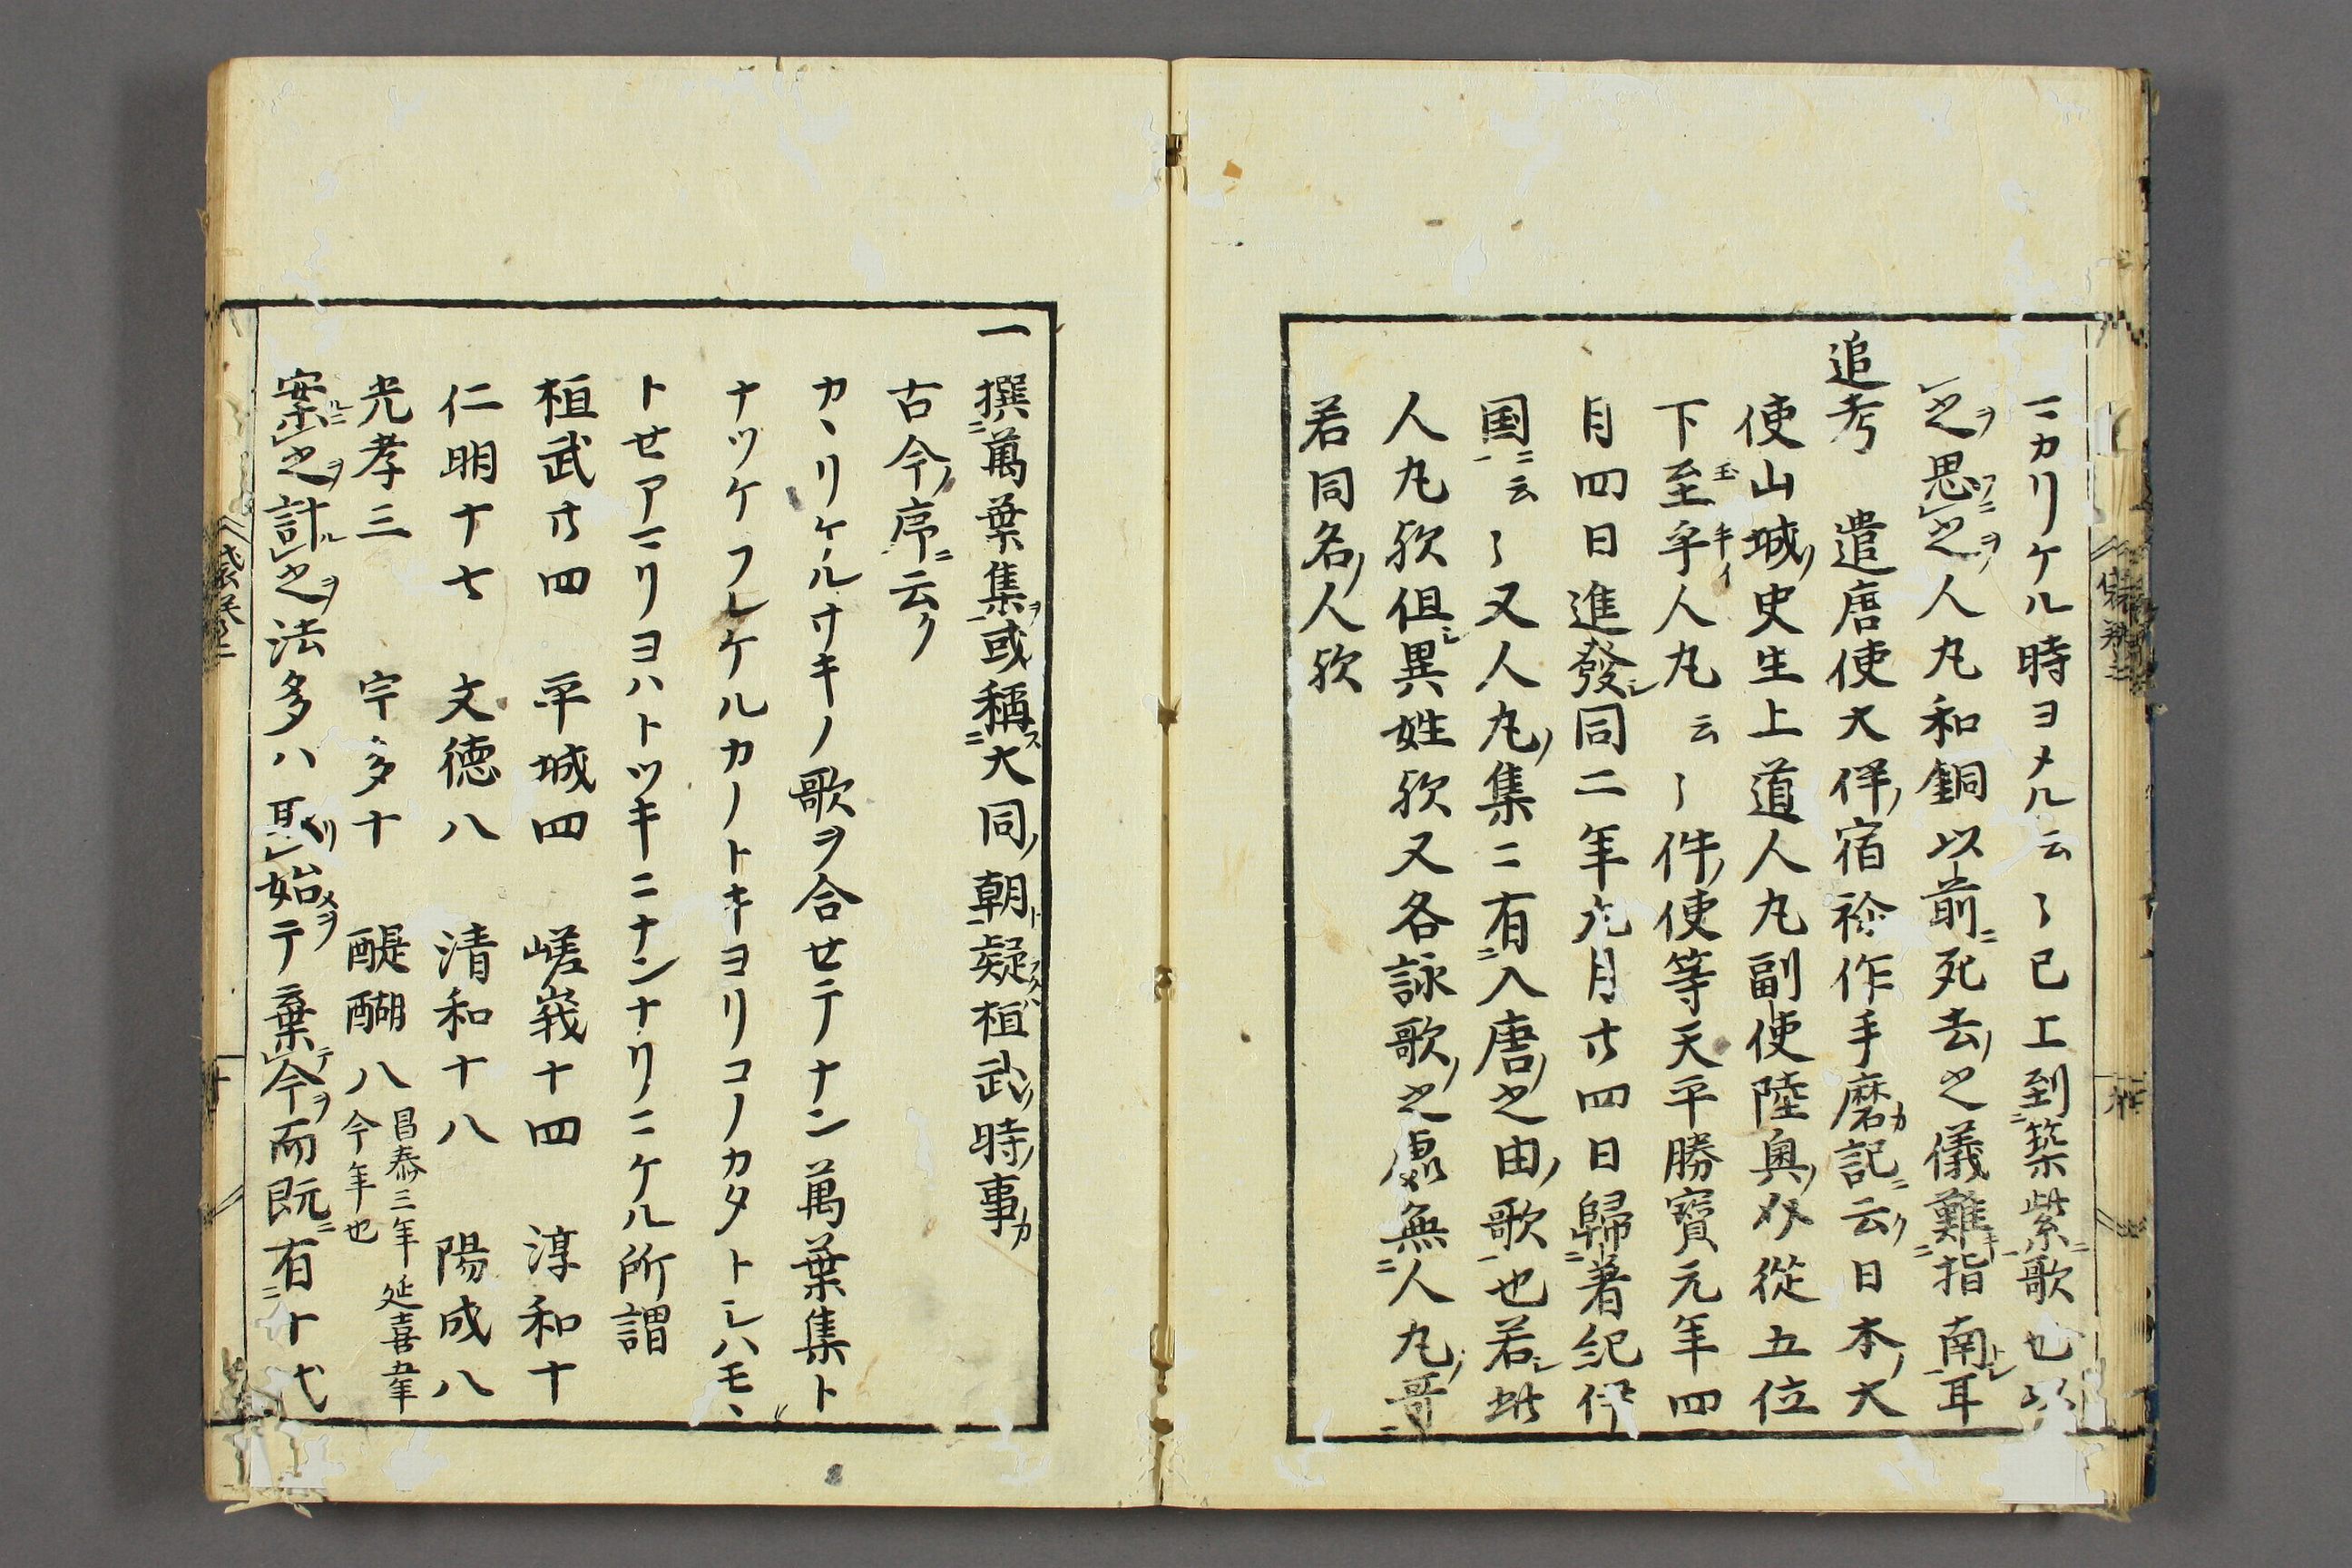 ニカリケル時ヨメル云々已上到筑紫歌也以
之思之人丸和銅以前死去之儀難指南耳
追考　遣唐使大伴宿祢作手麿記云日本大
使山城史生上道人丸副使陸奥从從五位
下至孚人丸云々件使等天平勝寶元年四
月四日進發同二年九月廿四日歸着紀伊
国云々又人丸集ニ有入唐之由歌也若此
人丸欤但異姓欤又各詠歌之處無人丸哥
若同名人欤
一撰萬葉集或稱大同朝疑桓武時事
古今序云ク
カヽリケルサキノ歌ヲ合セテナン萬葉集ト
ナツケフレケルカノトキヨリコノカタトシハモヽ
トセアマリヨハトツキニナンナリニケル所謂
桓武廿四　平城四　嵯峩十四　淳和十
仁明十七　文徳八　清和十八　陽成八
光孝三　宇多十　醍醐八昌泰三年延喜五年
今年也
案之計之法多ハ耻始テ棄今而既有十代